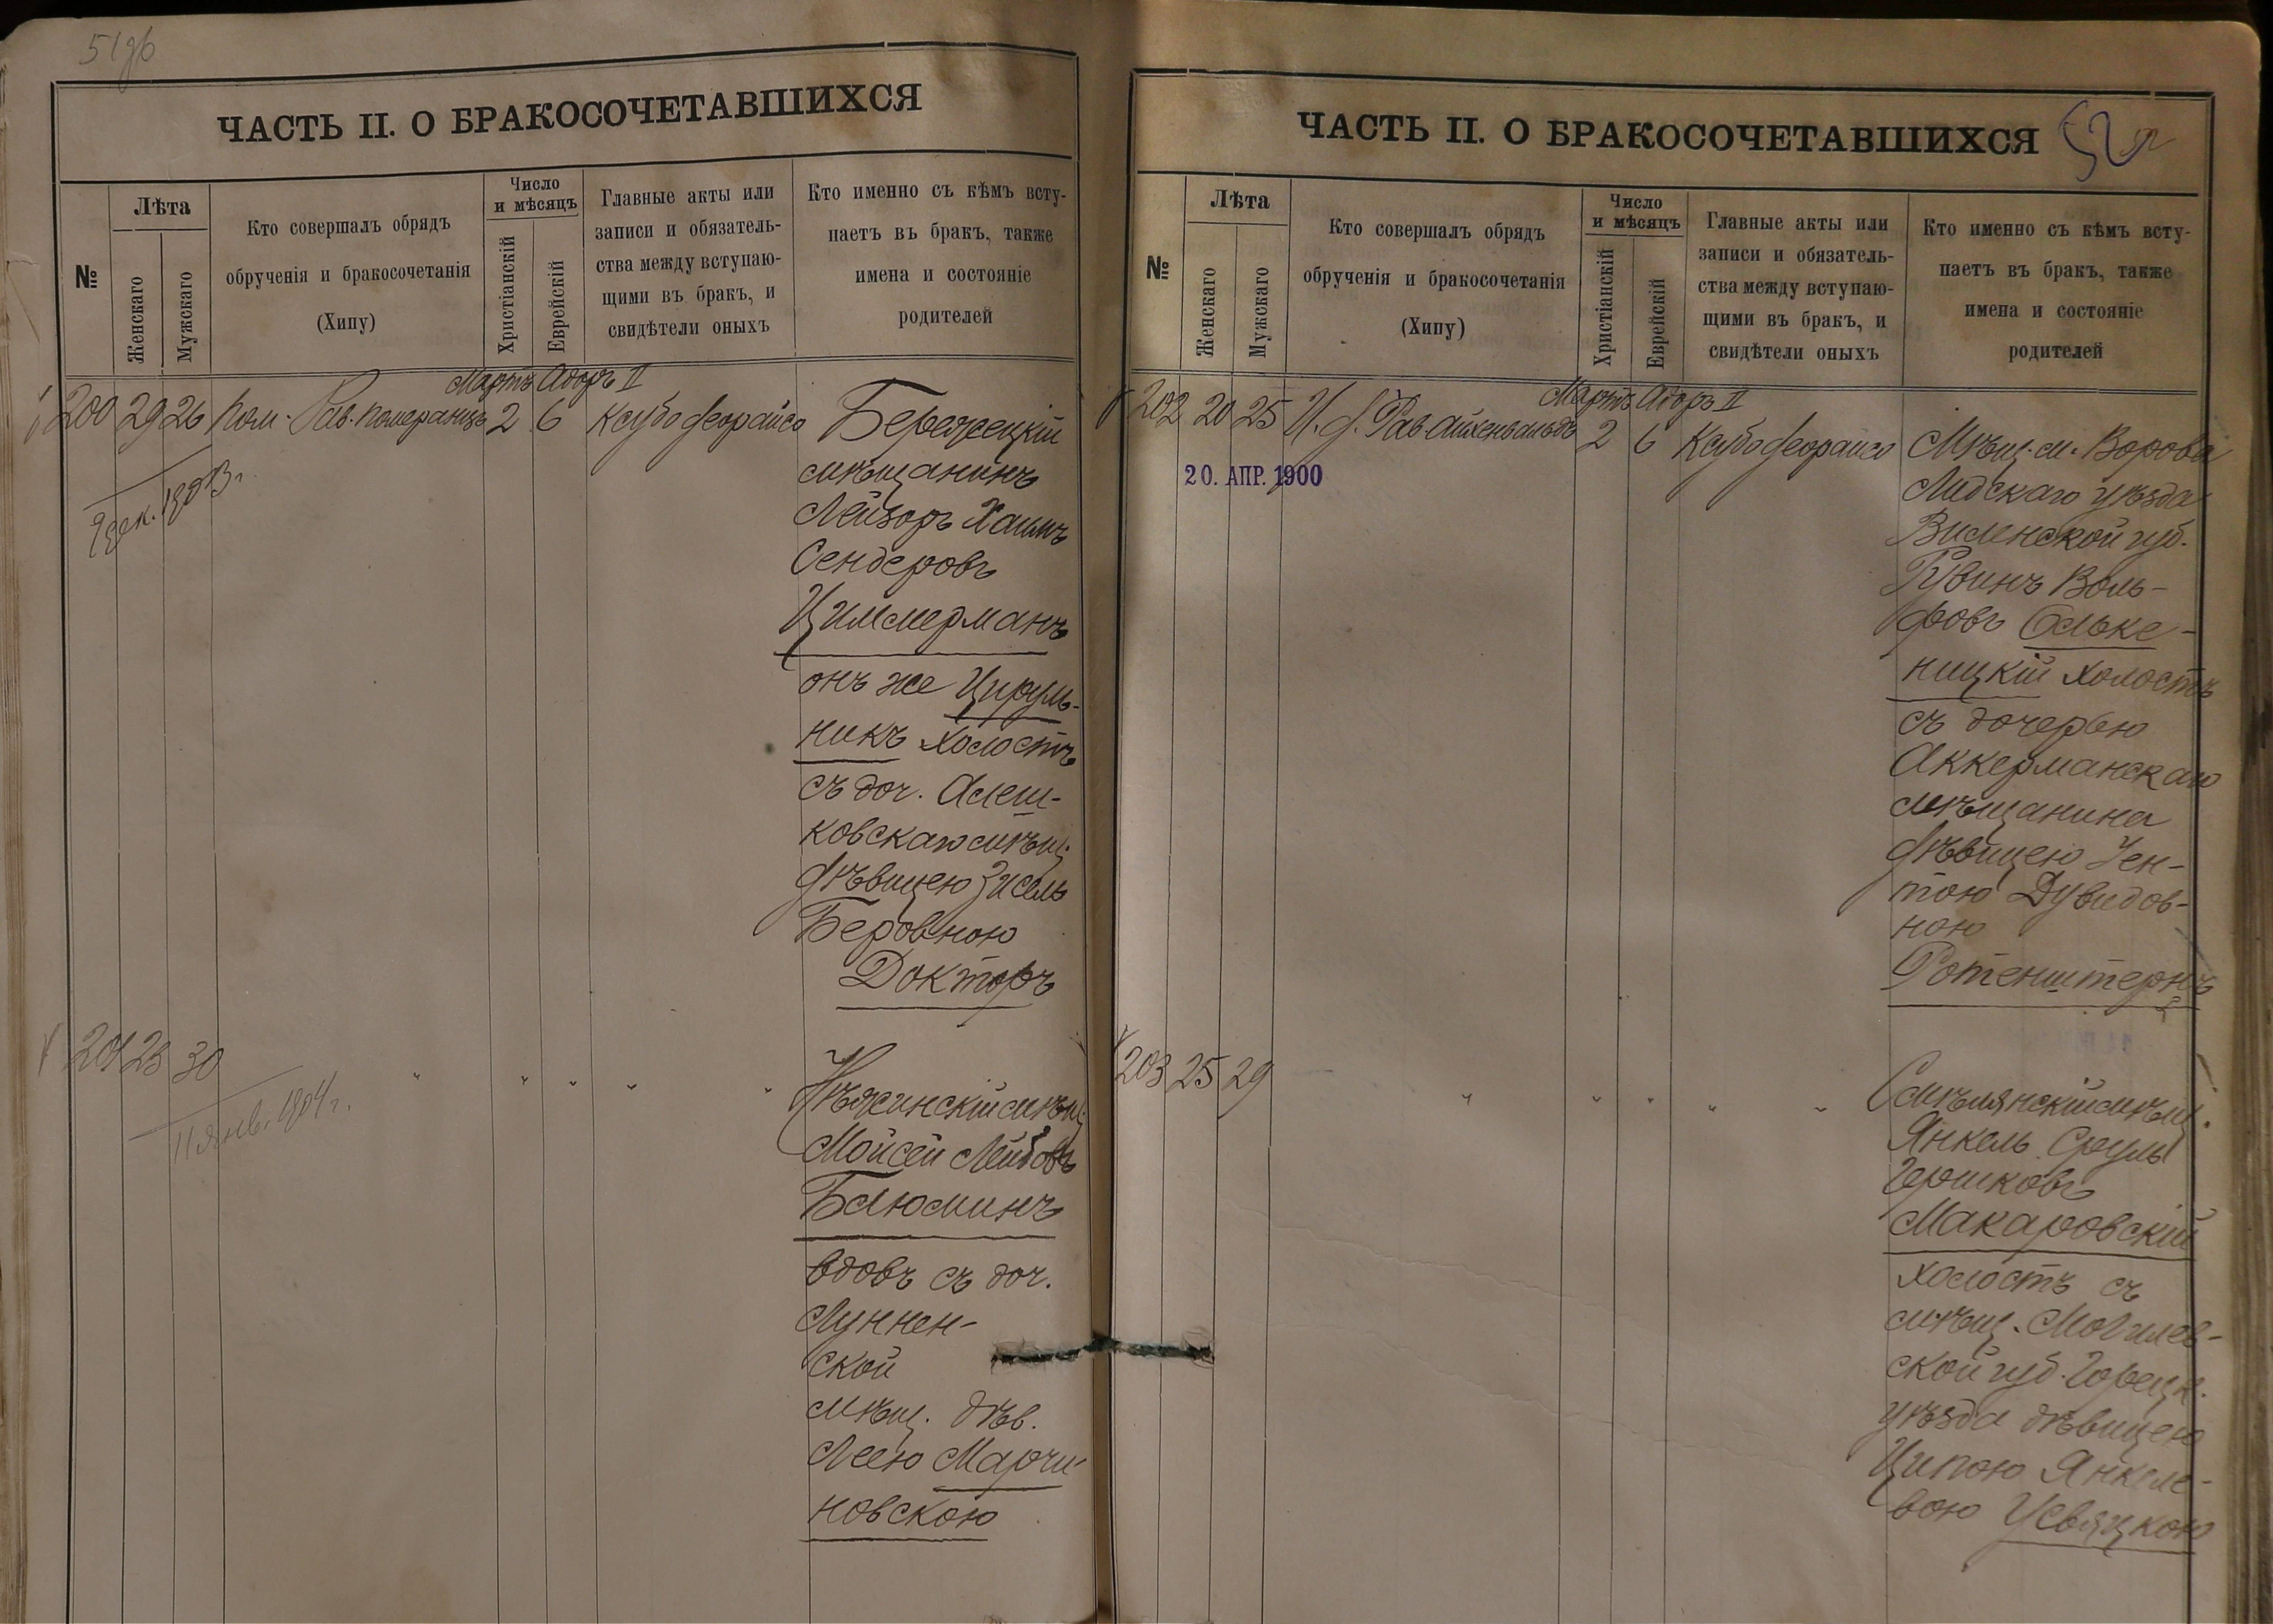 51об
ЧАСТЬ II. О БРАКОСОЧЕТАВШИХСЯ
№
Лѣта
Женскаго
Мужскаго
Кто совершалъ обрядъ
обрученія и бракосочетанія
(Хипу)
Число
и мѣсяцъ
Христіанскій
Еврейскій
Главные акты или
записи и обязатель-
ства между вступаю-
щими въ бракъ, и
свидѣтели оныхъ
Кто именно съ кѣмъ всту-
паетъ въ бракъ, также
имена и состояніе
родителей
Мартъ Адоръ II
200 29 26 Пом. Рав. Померанцъ 2 6 Ксубо деорайсо
9 дек. 1903 г.
Бережецкій
мѣщанинъ
Лейзоръ Хаимъ
Сендеровъ
Циммерманъ
онъ же Цируль-
никъ холостъ
съ доч. Алеш-
ковскаго мѣщ.
дѣвицею Зисель
Беровною
Докторъ
201 23 30 " " " " "
11 янв. 1904 г.
Нѣжинскій мѣщ.
Мойсей Лейбовъ
Блюминъ
вдовъ съ доч.
Луннен-
ской
мѣщ. дѣв.
Леею Марчи-
новскою
ЧАСТЬ II. О БРАКОСОЧЕТАВШИХСЯ
52
№
Лѣта
Женскаго
Мужскаго
Кто совершалъ обрядъ
обрученія и бракосочетанія
(Хипу)
Число
и мѣсяцъ
Христіанскій
Еврейскій
Главные акты или
записи и обязатель-
ства между вступаю-
щими въ бракъ, и
свидѣтели оныхъ
Кто именно съ кѣмъ всту-
паетъ въ бракъ, также
имена и состояніе
родителей
Мартъ Адоръ II
202 20 25 И. д. Рав Айхенвальдъ 2 6 Ксубо деорайсо
20. АПР. 1900
Мѣщ. м. Ворова
Лидскаго уѣзда
Виленской губ.
Рувинъ Воль-
фовъ Ольке-
ницкій холостъ
съ дочерью
Аккерманскаго
мѣщанина
дѣвицею Іен-
тою Дувидов-
ною
Ротенштернъ
203 25 29 " " " " "
Смѣлянскій мѣщ.
Янкель Сруль
Гершковъ
Макаровскій
холостъ съ
мѣщ. Могилев-
ской губ. Горецк.
уѣзда дѣвицею
Ципою Янкеле-
вою Усвяцкою